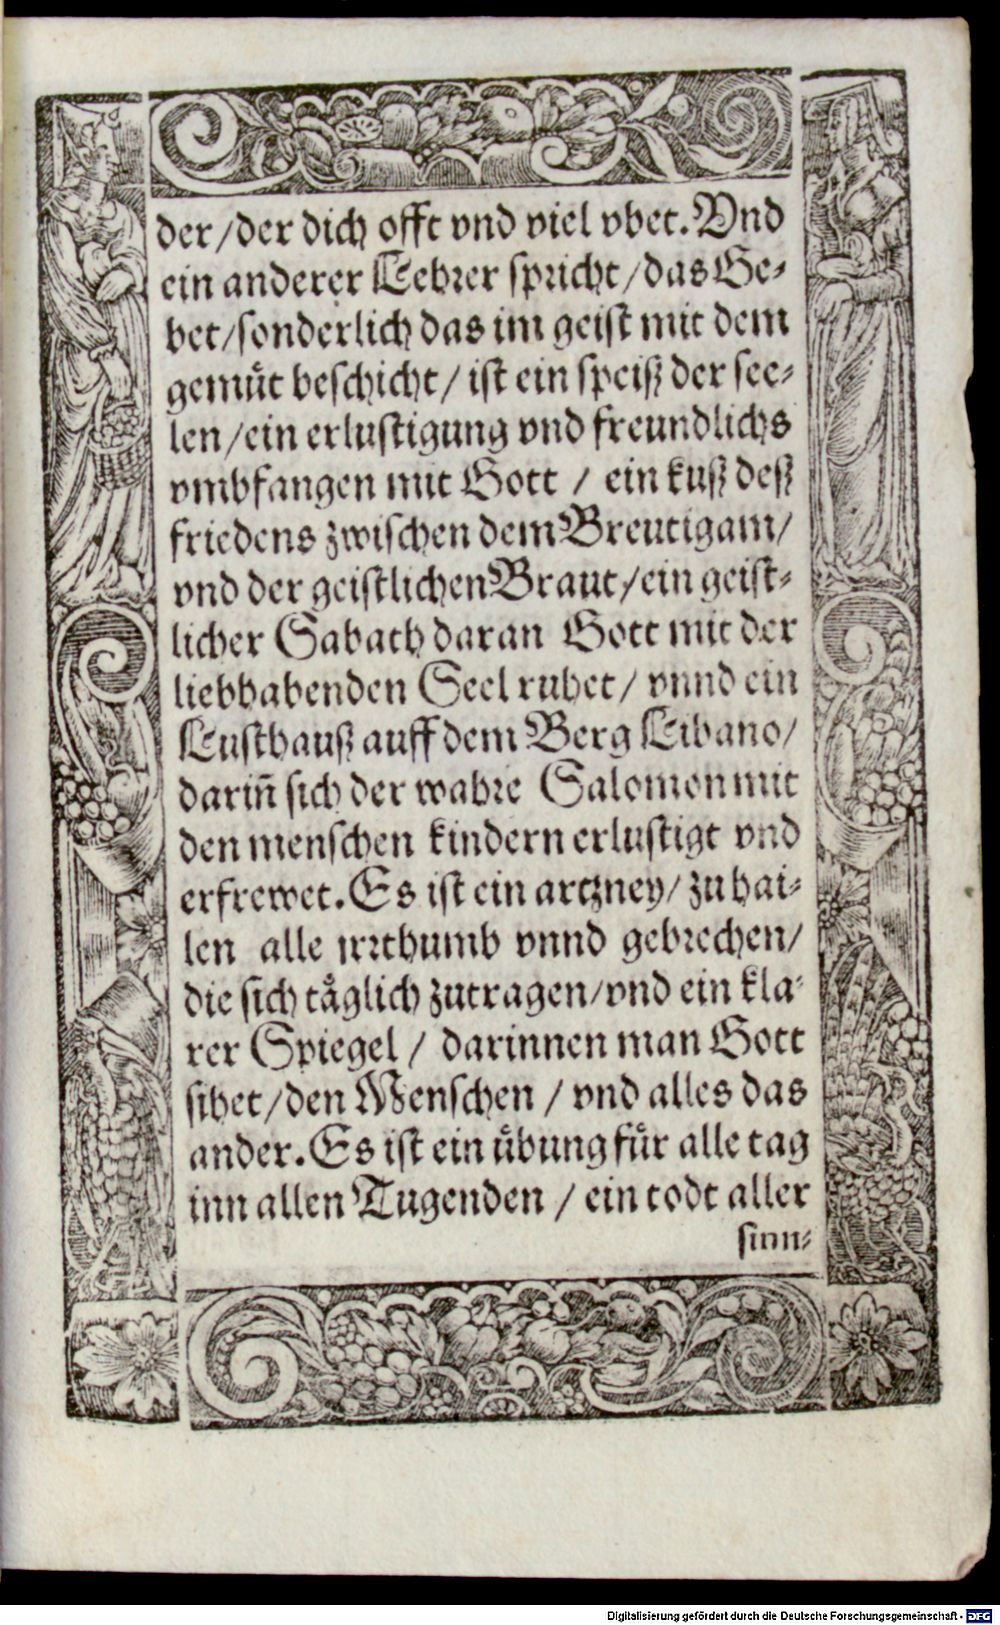 der/der dich offt vnd viel vbet. Vnd
ein anderer Lehrer spricht/das Ge-
bet/sonderlich das im geist mit dem
gemüt beschicht/ ist ein speiß der see-
len/ein erlustigung vnd freundlichs
vmbfangen mit Gott / ein kuß deß
friedens zwischen dem Breutigam/
vnd der geistlichen Braut/ein geist-
licher Sabath daran Gott mit der
liebhabenden Seel ruhet/ vnnd ein
Lusthauß auff dem Berg Libano/
dariñ sich der wahre Salomon mit
den menschen kindern erlustigt vnd
erfrewet. Es ist ein artzney/ zu hai-
len alle jrrthumb vnnd gebrechen/
die sich täglich zutragen/vnd ein kla-
rer Spiegel / darinnen man Gott
sihet/den Menschen / vnd alles das
ander. Es ist ein übung für alle tag
inn allen Tugenden / ein todt aller
sinn-
Digitalisierung gefördert durch die Deutsche Forschungsgemeinschaft - DFG